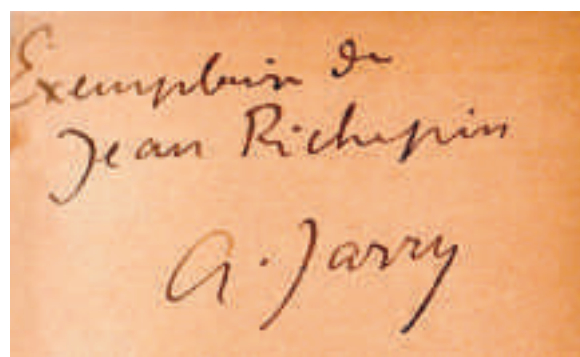 Exemplaire de
Jean Richepin
A. Jarry